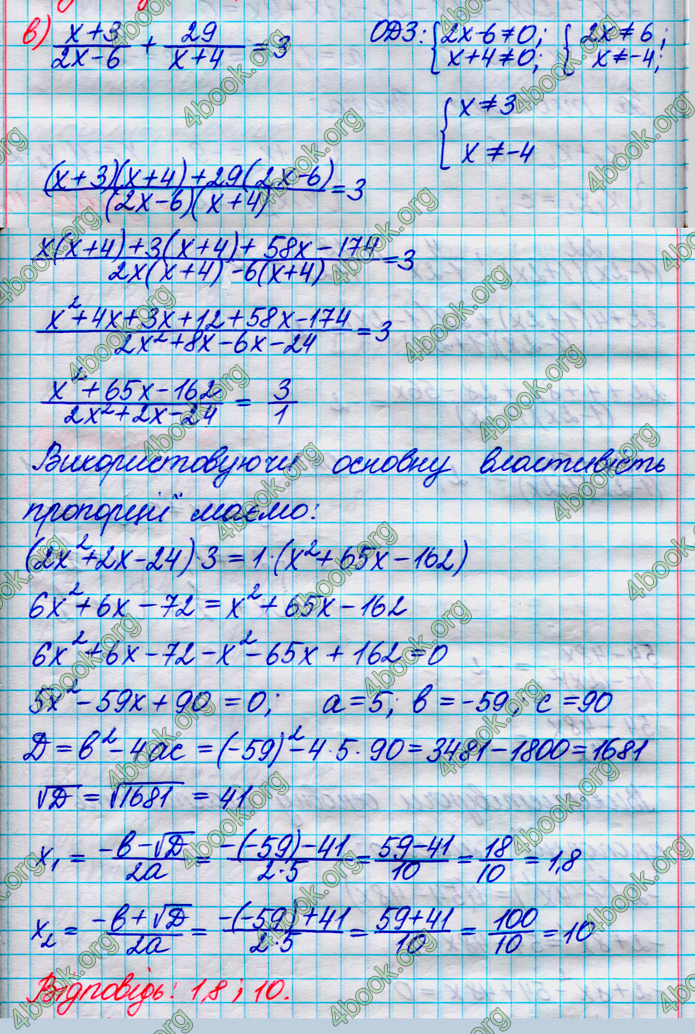 в) (x+3)/(2x-6) + 29/(x+4) = 3   ОДЗ: { 2x-6≠0; x+4≠0;   { 2x≠6; x≠-4;
{ x≠3
x≠-4
((x+3)(x+4)+29(2x-6))/((2x-6)(x+4)) = 3
(x(x+4)+3(x+4)+58x-174)/(2x(x+4)-6(x+4)) = 3
(x²+4x+3x+12+58x-174)/(2x²+8x-6x-24) = 3
(x²+65x-162)/(2x²+2x-24) = 3/1
Використовуючи основну властивість
пропорції маємо:
(2x²+2x-24)·3 = 1·(x²+65x-162)
6x²+6x-72 = x²+65x-162
6x²+6x-72-x²-65x+162=0
5x²-59x+90=0; a=5; в=-59; c=90
Д=в²-4ac=(-59)²-4·5·90=3481-1800=1681
√Д = √1681 = 41
x₁ = (-в-√Д)/2a = (-(-59)-41)/(2·5) = (59-41)/10 = 18/10 = 1,8
x₂ = (-в+√Д)/2a = (-(-59)+41)/(2·5) = (59+41)/10 = 100/10 = 10
Відповідь: 1,8; 10.
4book.org